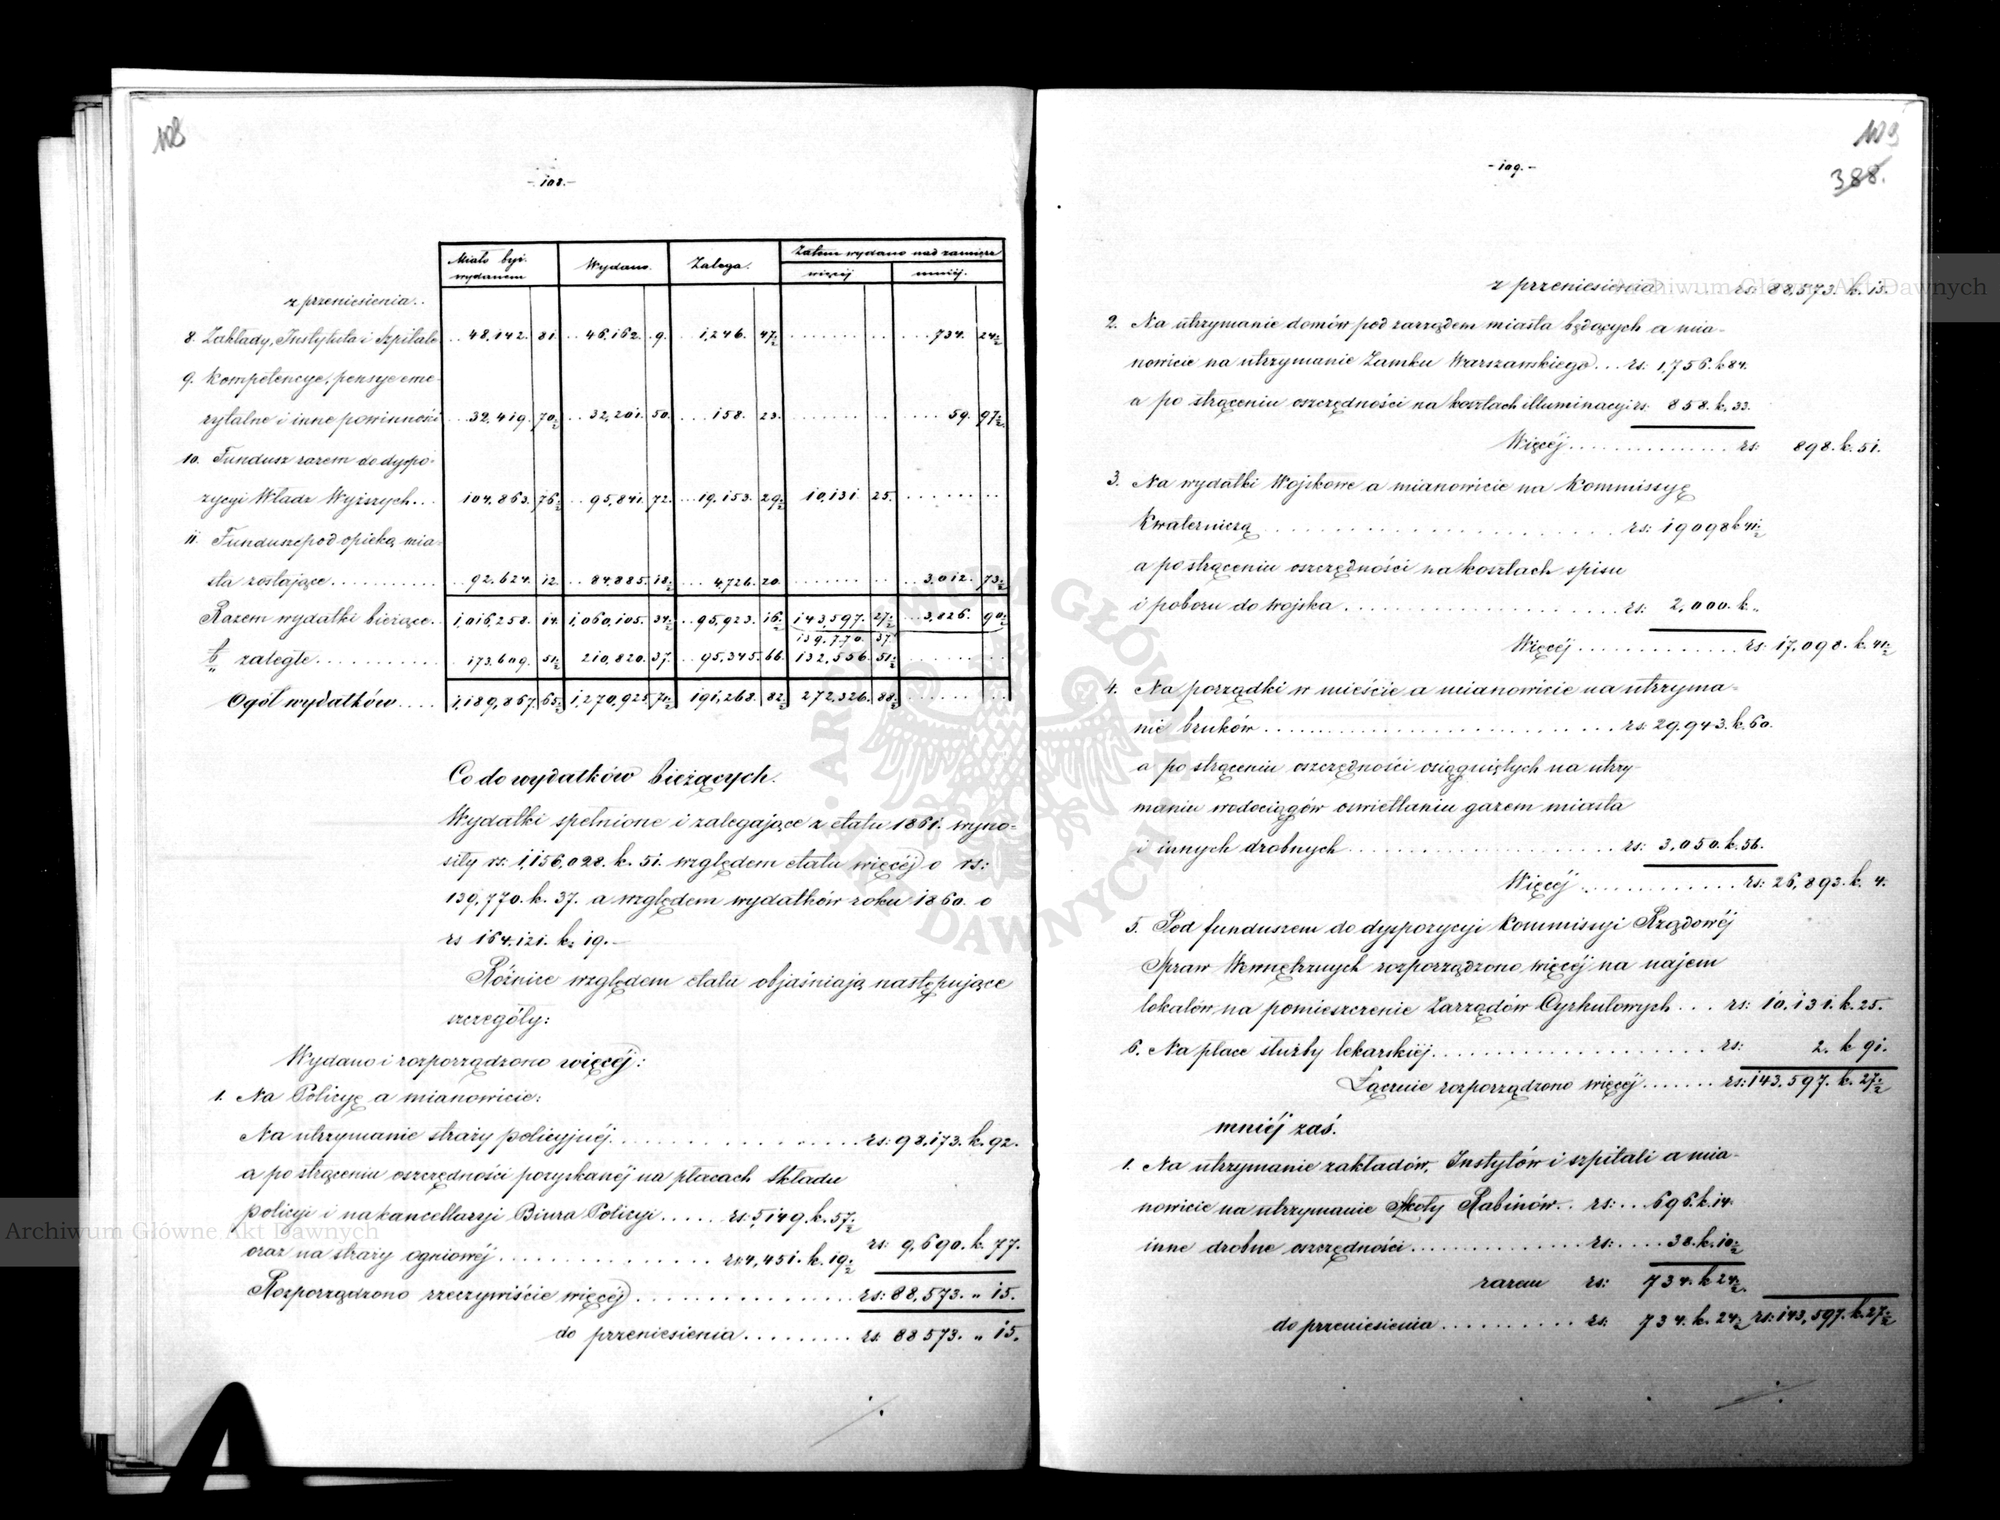 108
- 108. -
Miało być wydanem | Wydano. | Zalega. | Zatem wydano nad zamiar
więcéj | mniéj.
z przeniesienia..
8. Zakłady, Instytuta i Szpitale 48,142. 81. 46,162. 9. 1,246. 47½ 734. 24½
9. Kompetencye, pensye eme-
rytalne i inne powinności 32,419. 70½ 32,201. 50. 158. 23. 59. 97½
10. Fundusz razem do dyspo-
zycyi Władz Wyższych... 104,863. 76½ 95,841. 72. 19,153. 29½ 10,131. 25.
11. Fundusze pod opieką mia-
sta zostające........... 92,624. 12. 84,885. 18½ 4,726. 20. 3,012. 73½
Razem wydatki bieżące.. 1,016,258. 14. 1,060,105. 34½ 95,923. 16½ 143,597. 27½ 3,826. 90½
139,770. 37.
b/ zaległe............ 173,609. 51½ 210,820. 37. 95,345. 66. 132,556. 51½
Ogół wydatków.... 1,189,867. 65½ 1,270,925. 71½ 191,268. 82½ 272,326. 88½
Co do wydatków bieżących.
Wydatki spełnione i zalegające z etatu 1861. wyno-
siły rs: 1,156,028. k. 51. względem etatu więcéj o rs:
139,770. k. 37. a względem wydatków roku 1860. o
rs 164,121. k. 19.-
Różnice względem etatu objaśniają następujące
szczegóły:
Wydano i rozporządzono więcéj:
1. Na Policyę a mianowicie:
Na utrzymanie straży policyjnéj.................. rs: 98,173. k. 92.
a po strąceniu oszczędności pozyskanéj na płacach Składu
policyi i na kancellaryi Biura Policyi..... rs: 5,149. k. 57½
oraz na straży ogniowéj................ rs: 4,451. k. 19½ rs: 9,690. k. 77.
Rozporządzono rzeczywiście więcéj............... rs: 88,573. „ 15.
do przeniesienia......... rs: 88 573. „ 15.
109
388.
- 109. -
z przeniesienia rs: 88,573. k. 15.
2. Na utrzymanie domów pod zarządem miasta będących a mia-
nowicie na utrzymanie Zamku Warszawskiego... rs: 1,756. k 84.
a po strąceniu oszczędności na kosztach illuminacyi rs: 858. k. 33.
Więcéj................ rs: 898. k. 51.
3. Na wydatki Wojskowe a mianowicie na Kommissyę
Kwaterniczą.......................... rs: 19098 k 41½
a po strąceniu oszczędności na kosztach spisu
i poboru do wojska.................... rs: 2,000. k „
Więcéj............... rs: 17,098. k. 41½
4. Na porządki w mieście a mianowicie na utrzyma-
nie bruków.......................... rs: 29,943. k. 60.
a po strąceniu oszczędności osiągniętych na utrzy-
maniu wodociągów oswietlaniu gazem miasta
i innych drobnych.................... rs: 3,050. k. 56.
Więcéj............... rs: 26,893. k. 4.
5. Pod funduszem do dyspozycyi Kommissyi Rządowéj
Spraw Wewnętrznych rozporządzono więcéj na najem
lokalów na pomieszczenie Zarządów Cyrkułowych... rs: 10,131. k. 25.
6. Na płace służby lekarskiéj.................... rs: 2. k 91.
Łącznie rozporządzono więcéj....... rs: 143,597. k. 27½
mniéj zaś.
1. Na utrzymanie zakładów, Instytów i szpitali a mia-
nowicie na utrzymanie Szkoły Rabinów.. rs: .. 696. k. 14.
inne drobne oszczędności............... rs: .... 38. k. 10½
razem rs: 734. k 24½
do przeniesienia........... rs: 734. k. 24½ rs: 143,597. k. 27½
Archiwum Główne Akt Dawnych
Archiwum Główne Akt Dawnych
ARCHIWUM GŁÓWNE AKT DAWNYCH